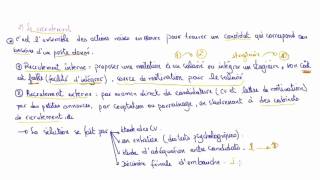 Le recrutement
C'est l'ensemble des actions mises en œuvre pour trouver un candidat qui correspond aux
besoins d'un poste donné.
Recrutement interne : proposer une mutation à un salarié ou intégrer un stagiaire, son coût
est faible (facilité d'intégrer), source de motivation pour le salarié
Recrutement externe : par examen direct de candidatures (CV et lettre de motivation)
par des petites annonces, par cooptation ou parrainage, en s'adressant à des cabinets
de recrutement etc
La sélection se fait par
étude des CV.
un entretien (des tests psychologiques)
étude d'adéquation entre candidats
Décision finale d'embauche